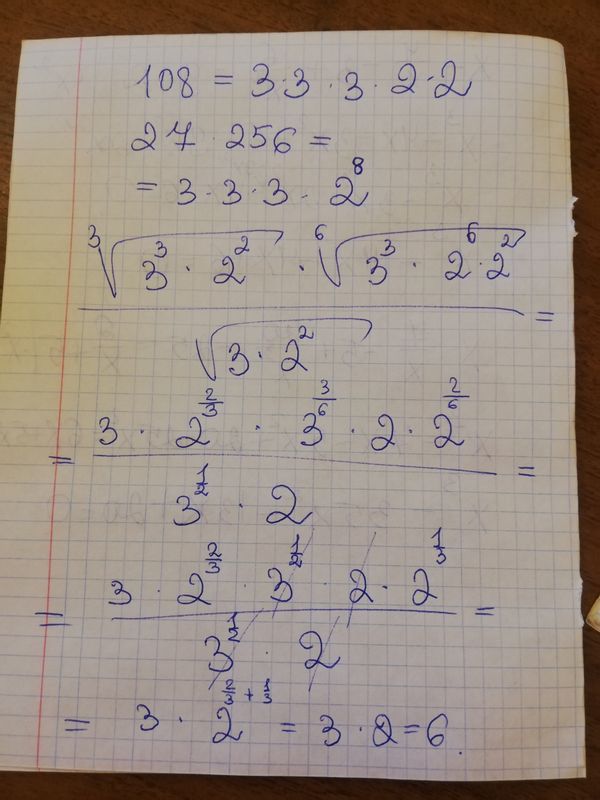 108 = 3·3·3·2·2
27·256 =
= 3·3·3·2⁸
(∛(3³·2²)·⁶√(3³·2⁶·2²))/(√(3·2²)) =
= (3·2^(2/3)·3^(3/6)·2·2^(2/6))/(3^(1/2)·2) =
= (3·2^(2/3)·3^(1/2)·2·2^(1/3))/(3^(1/2)·2) =
= 3·2^(2/3+1/3) = 3·2=6.